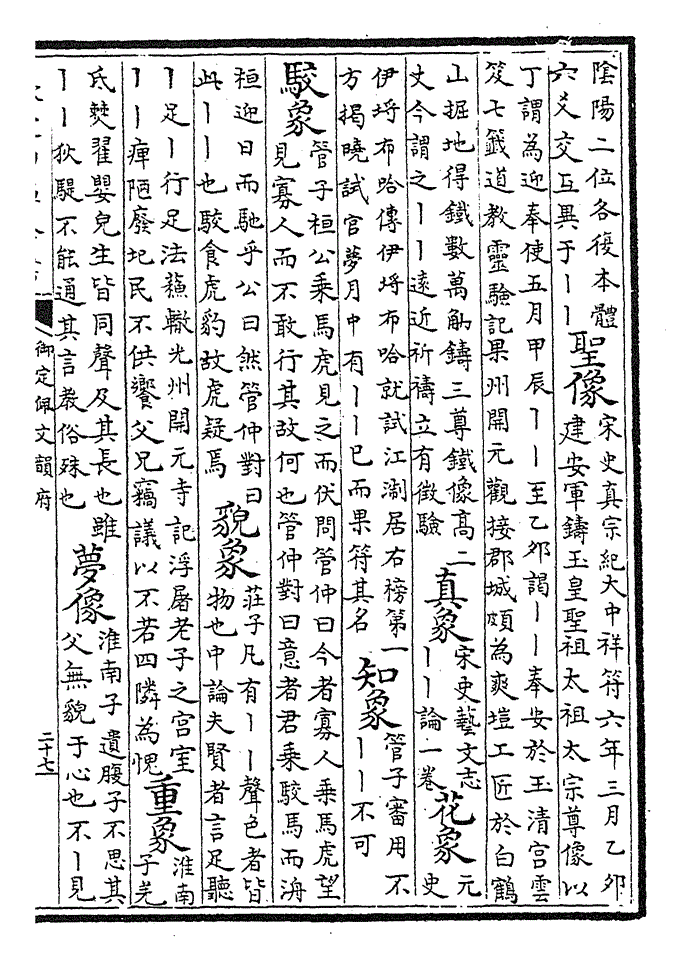 陰陽二位各復本體
六爻交互異于丨丨
聖像
宋史真宗紀大中祥符六年三月乙夘
建安軍鑄玉皇聖祖太祖太宗尊像以
丁謂為迎奉使五月甲辰丨丨至乙夘謁丨丨奉安於玉清宫雲
笈七籤道教靈驗記果州開元觀接郡城頗為爽塏工匠於白鶴
山掘地得鐵數萬觔鑄三尊鐵像高二
丈今謂之丨丨逺近祈禱立有徵驗
真象
宋史藝文志
丨丨論一卷
花象
元
史
伊埒布哈傳伊埒布哈就試江淛居右榜第一
方揭曉試官夢月中有丨丨已而果符其名
知象
管子審用不
丨丨不可
駮象
管子桓公乘馬虎見之而伏問管仲曰今者寡人乘馬虎望
見寡人而不敢行其故何也管仲對曰意者君乘駮馬而洀
桓迎日而馳乎公曰然管仲對曰
此丨丨也駮食虎豹故虎疑焉
貌象
莊子凡有丨丨聲色者皆
物也中論夫賢者言足聽
丨足丨行足法蘇轍光州開元寺記浮屠老子之宫室
丨丨庳陋廢圮民不供饗父兄竊議以不若四隣為愧
重象
淮南
子羌
氐僰翟嬰兒生皆同聲及其長也雖
丨丨狄騠不能通其言教俗殊也
夢像
淮南子遺腹子不思其
父無貌于心也不丨見
御定佩文韻府
二十七